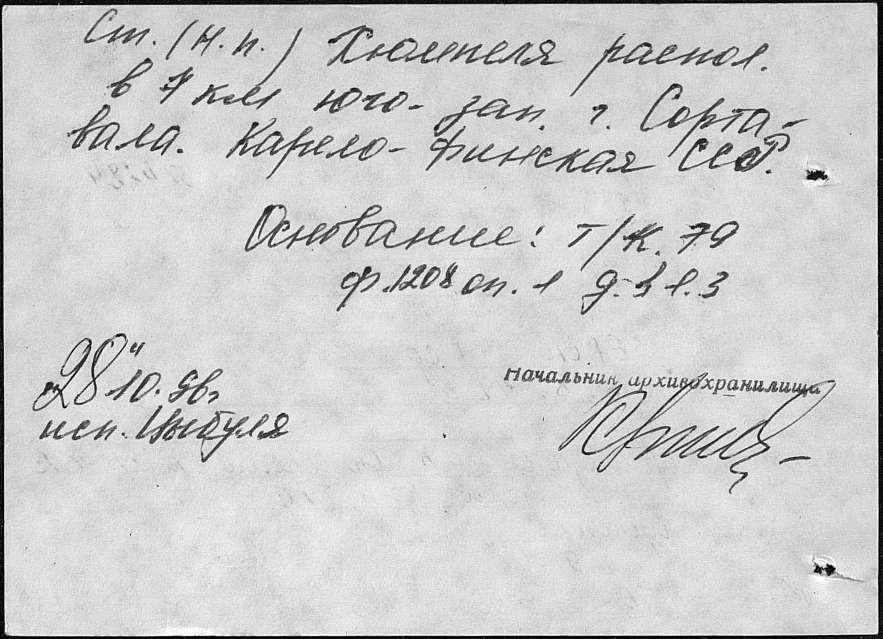 Ст. (н. п.) Хюмпеля распол.
в 7 км юго-зап. г. Сорта-
вала. Карело-Финская ССР.
Основание: т/к. 79
ф. 1208 оп. 1 д. 3 л. 3
"28" 10.
исп. Цыбуля
Начальник архивохранилища